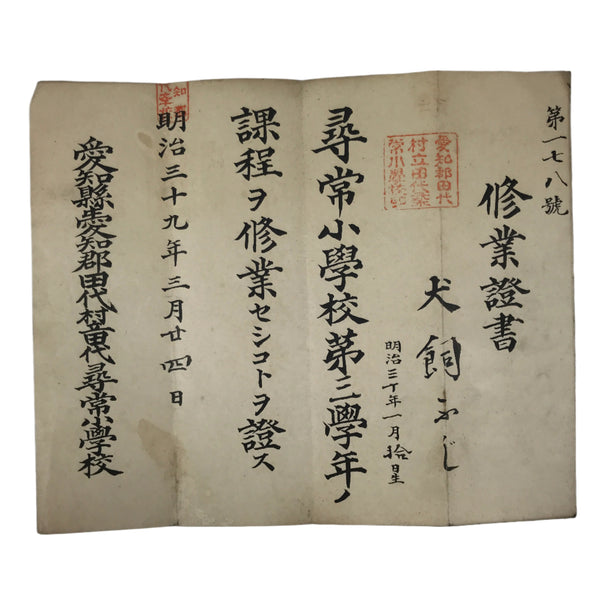 第一七八號
修業證書
犬飼ふじ
明治三十年一月拾日生
愛知郡田代
村立田代尋
常小學校印
尋常小學校第三學年ノ
課程ヲ修業セシコトヲ證ス
明治三十九年三月廿四日
愛知縣愛知郡田代村立田代尋常小學校